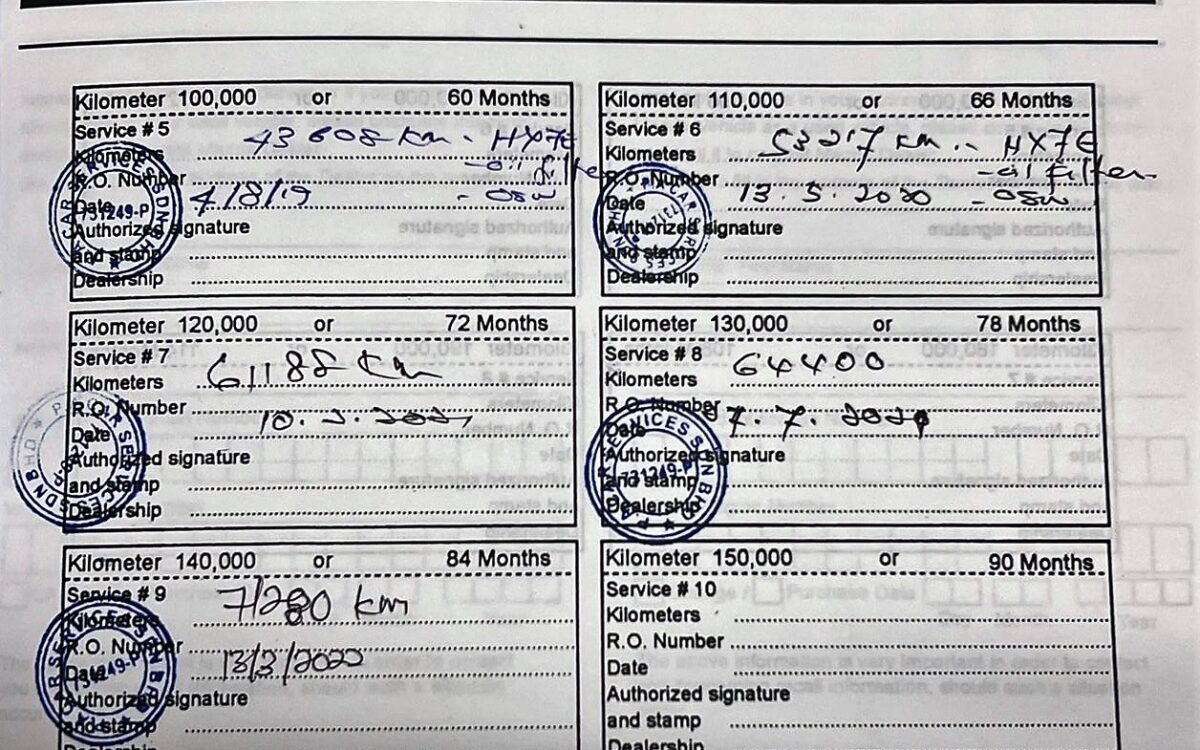 Kilometer 100,000 or 60 Months
Service # 5
43608 km - HX7E
Kilometers
- oil filter
R.O. Number
Date 4/8/19 - OSW
731249-P
Authorized signature
and stamp
Dealership
Kilometer 110,000 or 66 Months
Service # 6
Kilometers 55327 km - HX7E
- oil filter
R.O. Number
Date 13.5.2020 - OSW
Authorized signature
and stamp
Dealership
Kilometer 120,000 or 72 Months
Service # 7
Kilometers 61188 km
R.O. Number
Date
Authorized signature
and stamp
Dealership
Kilometer 130,000 or 78 Months
Service # 8
Kilometers 64400
R.O. Number
Date 7.7.2021
731249-P
Authorized signature
and stamp
Dealership
Kilometer 140,000 or 84 Months
Service # 9
Kilometers 71280 km
R.O. Number
Date 13/3/2022
731249-P
Authorized signature
and stamp
Dealership
Kilometer 150,000 or 90 Months
Service # 10
Kilometers
R.O. Number
Date
Authorized signature
and stamp
Dealership